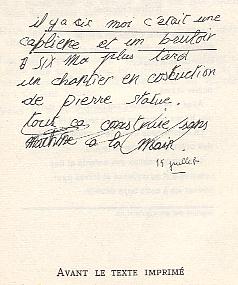 il y a six moi c'était une
caplière et un brutoir
6 six moi plus tard
un chantier en costuction
de pierre statue.
tout ça construie sans
machine a la main.
15 juillet
AVANT LE TEXTE IMPRIMÉ